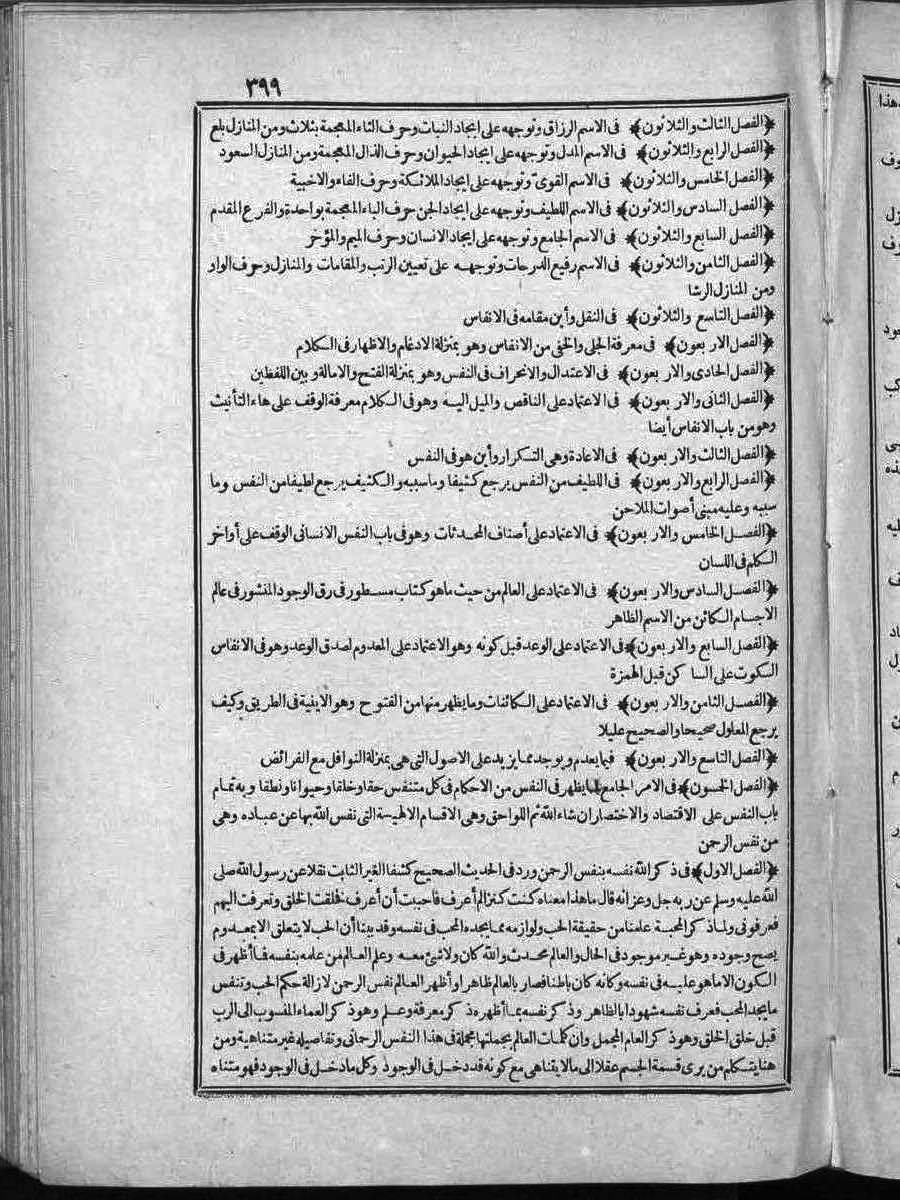 ٣٩٩
﴿الفصل الثالث والثلاثون﴾ فى الاسم الرزاق وتوجهه على ايجاد النبات وحرف الثاء المعجمة بثلاث ومن المنازل بلع
﴿الفصل الرابع والثلاثون﴾ فى الاسم المذل وتوجهه على ايجاد الحيوان وحرف الذال المعجمة ومن المنازل السعود
﴿الفصل الخامس والثلاثون﴾ فى الاسم القوىّ وتوجهه على ايجاد الملائكة وحرف الفاء والاخبية
﴿الفصل السادس والثلاثون﴾ فى الاسم اللطيف وتوجهه على ايجاد الجن حرف الباء المعجمة بواحدة والفرع المقدم
﴿الفصل السابع والثلاثون﴾ فى الاسم الجامع وتوجهه على ايجاد الانسان وحرف الميم والمؤخر
﴿الفصل الثامن والثلاثون﴾ فى الاسم رفيع الدرجات وتوجهه على تعيين الرتب والمقامات والمنازل وحرف الواو
ومن المنازل الرشا
﴿الفصل التاسع والثلاثون﴾ فى النقل وأين مقامه فى الانفاس
﴿الفصل الاربعون﴾ فى معرفة الجلى والخفى من الانفاس وهو بمنزلة الادغام والاظهار فى الكلام
﴿الفصل الحادى والاربعون﴾ فى الاعتدال والانحراف فى النفس وهو بمنزلة الفتح والامالة وبين اللفظين
﴿الفصل الثانى والاربعون﴾ فى الاعتماد على الناقص والميل اليه وهو فى الكلام معرفة الوقف على هاء التأنيث
وهو من باب الانفاس أيضا
﴿الفصل الثالث والاربعون﴾ فى الاعادة وهى التكرار وأين هو فى النفس
﴿الفصل الرابع والاربعون﴾ فى اللطيف من النفس يرجع كثيفا وما سببه والكثيف يرجع لطيفا من النفس وما
سببه وعليه مبنى أصوات الملاحن
﴿الفصل الخامس والاربعون﴾ فى الاعتماد على أصناف المحدثات وهو فى باب النفس الانسانى الوقف على أواخر
الكلم فى اللسان
﴿الفصل السادس والاربعون﴾ فى الاعتماد على العالم من حيث ما هو كتاب مسطور فى رق الوجود المنشور فى عالم
الاجسام الكائن من الاسم الظاهر
﴿الفصل السابع والاربعون﴾ فى الاعتماد على الوعد قبل كونه وهو الاعتماد على المعدوم لصدق الوعد وهو فى الانفاس
السكوت على الساكن قبل الهمزة
﴿الفصل الثامن والاربعون﴾ فى الاعتماد على الكائنات وما يظهر منها من الفتوح وهو الاينية فى الطريق وكيف
يرجع المعلول صحيحا والصحيح عليلا
﴿الفصل التاسع والاربعون﴾ فيما يعدم ويوجد مما يزيد على الاصول التى هى بمنزلة النوافل مع الفرائض
﴿الفصل الخمسون﴾ فى الامر الجامع لما يظهر فى النفس من الاحكام فى كل متنفس حقا وخلقا وحيوانا ونطقا وبه تمام
باب النفس على الاقتصاد والاختصار ان شاء الله ثم اللواحق وهى الاقسام الالهية التى نفس الله بها عن عباده وهى
من نفس الرحمن
﴿الفصل الاول﴾ فى ذكر الله نفسه بنفس الرحمن ورد فى الحديث الصحيح كشفا الغير الثابت نقلا عن رسول الله صلى
الله عليه وسلم عن ربه جل وعز انه قال ما هذا معناه كنت كنزا لم أعرف فأحببت أن أعرف فخلقت الخلق وتعرفت اليهم
فعرفونى ولما ذكر المحبة علمنا من حقيقة الحب ولوازمه مما يجده المحب فى نفسه وقد بينا أن الحب لا يتعلق الا بمعدوم
يصح وجوده وهو غير موجود فى الحال والعالم محدث والله كان ولا شئ معه وعلم العالم من علمه بنفسه فما أظهر فى
الكون الا ما هو عليه فى نفسه وكأنه كان باطنا فصار بالعالم ظاهرا وأظهر العالم نفس الرحمن لازالة حكم الحب وتنفس
ما يجد المحب فعرف نفسه شهودا بالظاهر وذكر نفسه بما أظهره ذكر معرفة وعلم وهو ذكر العماء المنسوب الى الرب
قبل خلق الخلق وهو ذكر العام المجمل وان كلمات العالم بجملتها مجملة فى هذا النفس الرحمانى وتفاصيله غير متناهية ومن
هنا يتكلم من يرى قسمة الجسم عقلا الى ما لا يتناهى مع كونه قد دخل فى الوجود وكل ما دخل فى الوجود فهو متناه